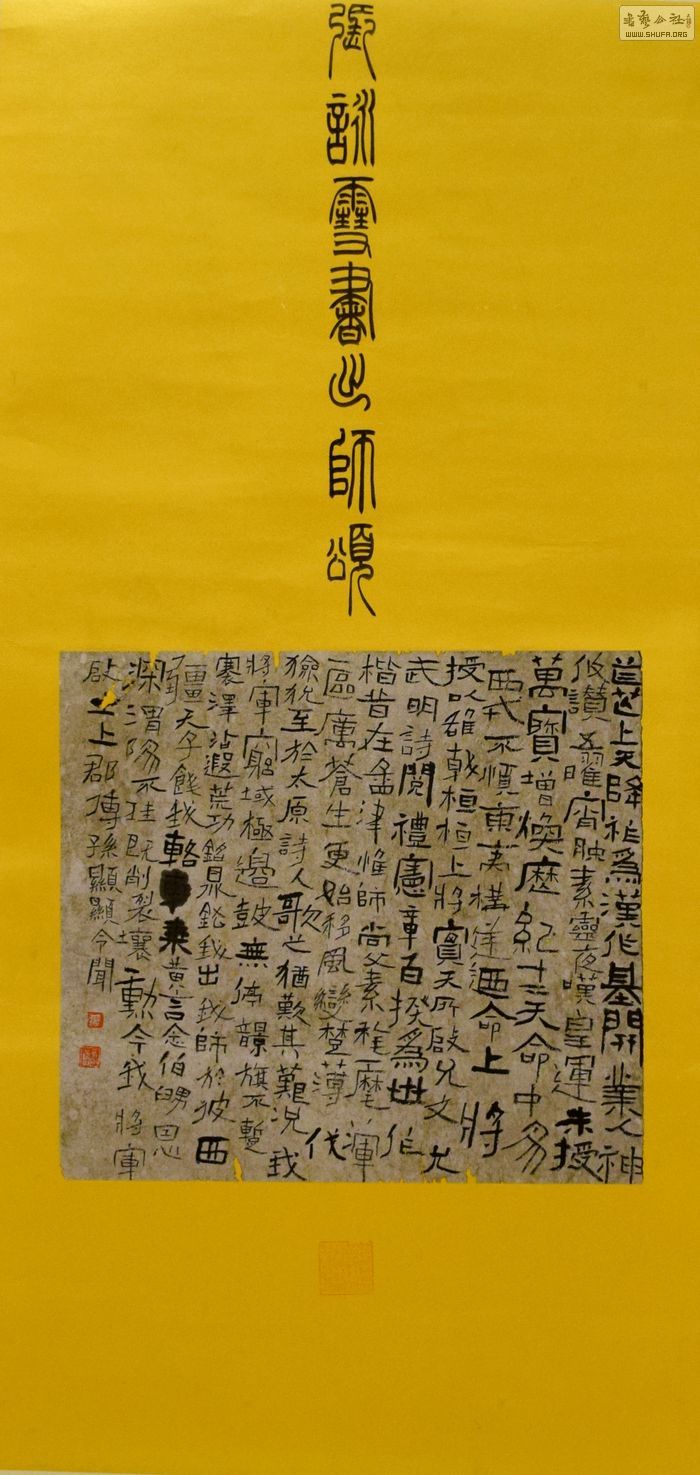 張詠雪書出師頌
芒芒上天降祚為漢作基開業人神
攸讚五曜宵映素靈夜嘆皇運未授
萬寶增煥歷紀十二天命中易
西戎不順東夷構逆迺命上將
授以雄戟桓桓上將寔天所啟允文允
武明詩閱禮憲章百揆為世作
楷昔在孟津惟師尚父素旄一麾渾一
區寓蒼生更始移風變楚薄伐
獫狁至於太原詩人歌之猶歎其艱況我
將軍窮域極邊鼓無停響旗不蹔
褰澤沾遐荒功銘鼎鉉我出我師於彼西
疆天子餞我輅車乘黃言念伯舅恩
深渭陽介珪既削裂壤酬勳今我將軍
啟土上郡傳子傳孫顯顯令聞
書藝公社
WWW.SHUFA.ORG